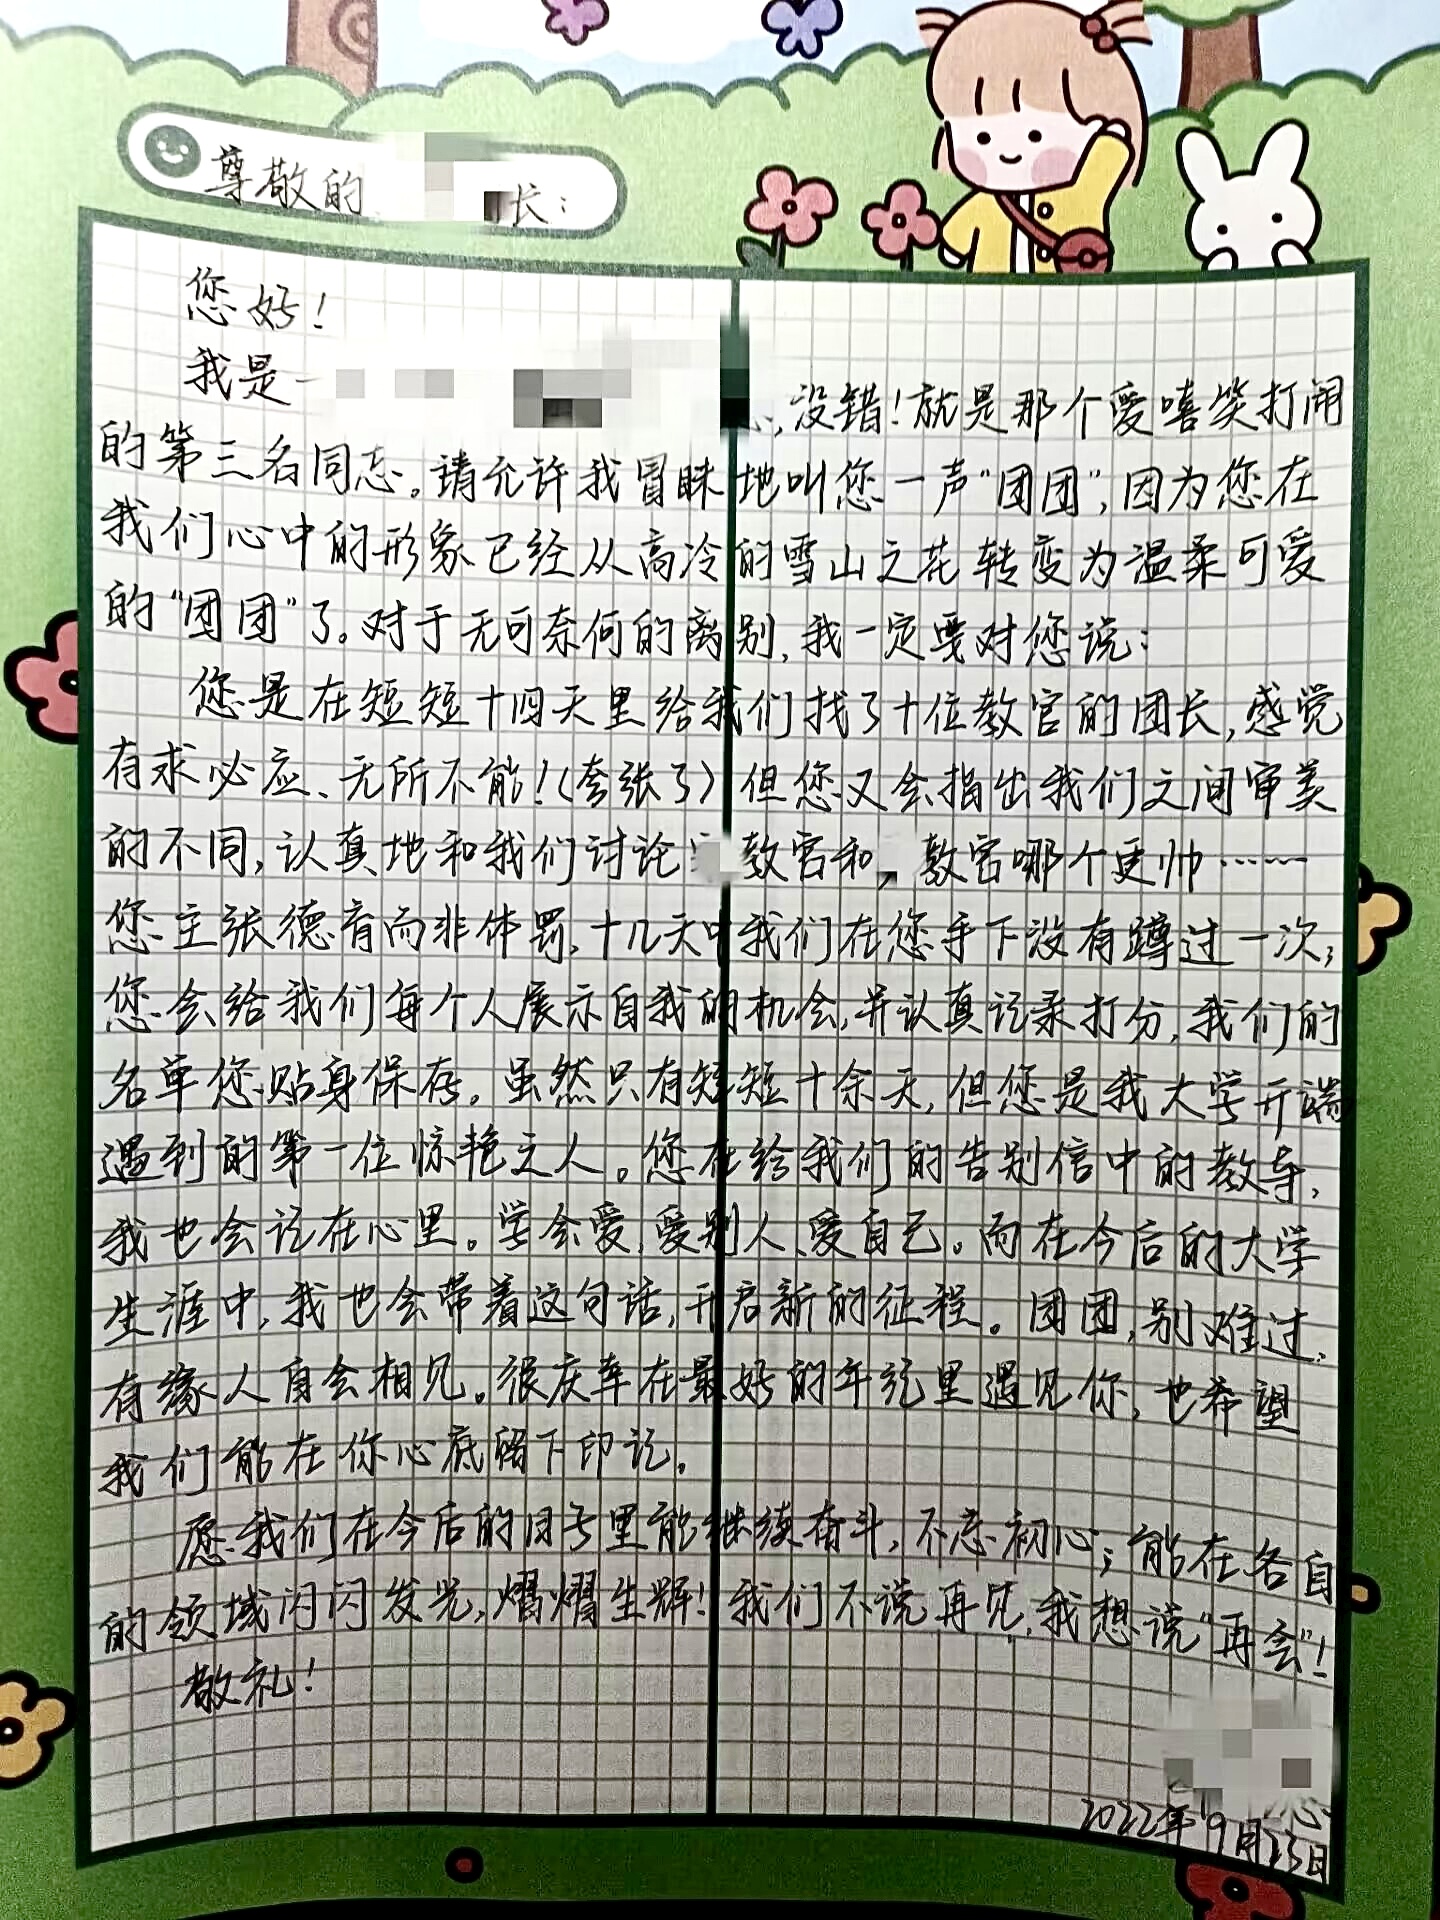 尊敬的 长:
您好!
我是一 ,没错!就是那个爱嘻笑打闹
的第三名同志。请允许我冒昧地叫您一声“团团”,因为您在
我们心中的形象已经从高冷的雪山之花转变为温柔可爱
的“团团”了。对于无可奈何的离别,我一定要对您说:
您是在短短十四天里给我们找了十位教官的团长,感觉
有求必应、无所不能!(夸张了)但您又会指出我们之间审美
的不同,认真地和我们讨论 教官和 教官哪个更帅……
您主张德育而非体罚,十几天中我们在您手下没有蹲过一次;
您会给我们每个人展示自我的机会,并认真记录打分,我们的
名单您贴身保存。虽然只有短短十余天,但您是我大学开端
遇到的第一位惊艳之人。您在给我们的告别信中的教导,
我也会记在心里。学会爱,爱别人、爱自己。而在今后的大学
生涯中,我也会带着这句话,开启新的征程。团团,别难过,
有缘人自会相见。很庆幸在最好的年纪里遇见你,也希望
我们能在你心底留下印记。
愿我们在今后的日子里能继续奋斗,不忘初心;能在各自
的领域闪闪发光,熠熠生辉!我们不说再见,我想说“再会”!
敬礼!
2022年9月23日